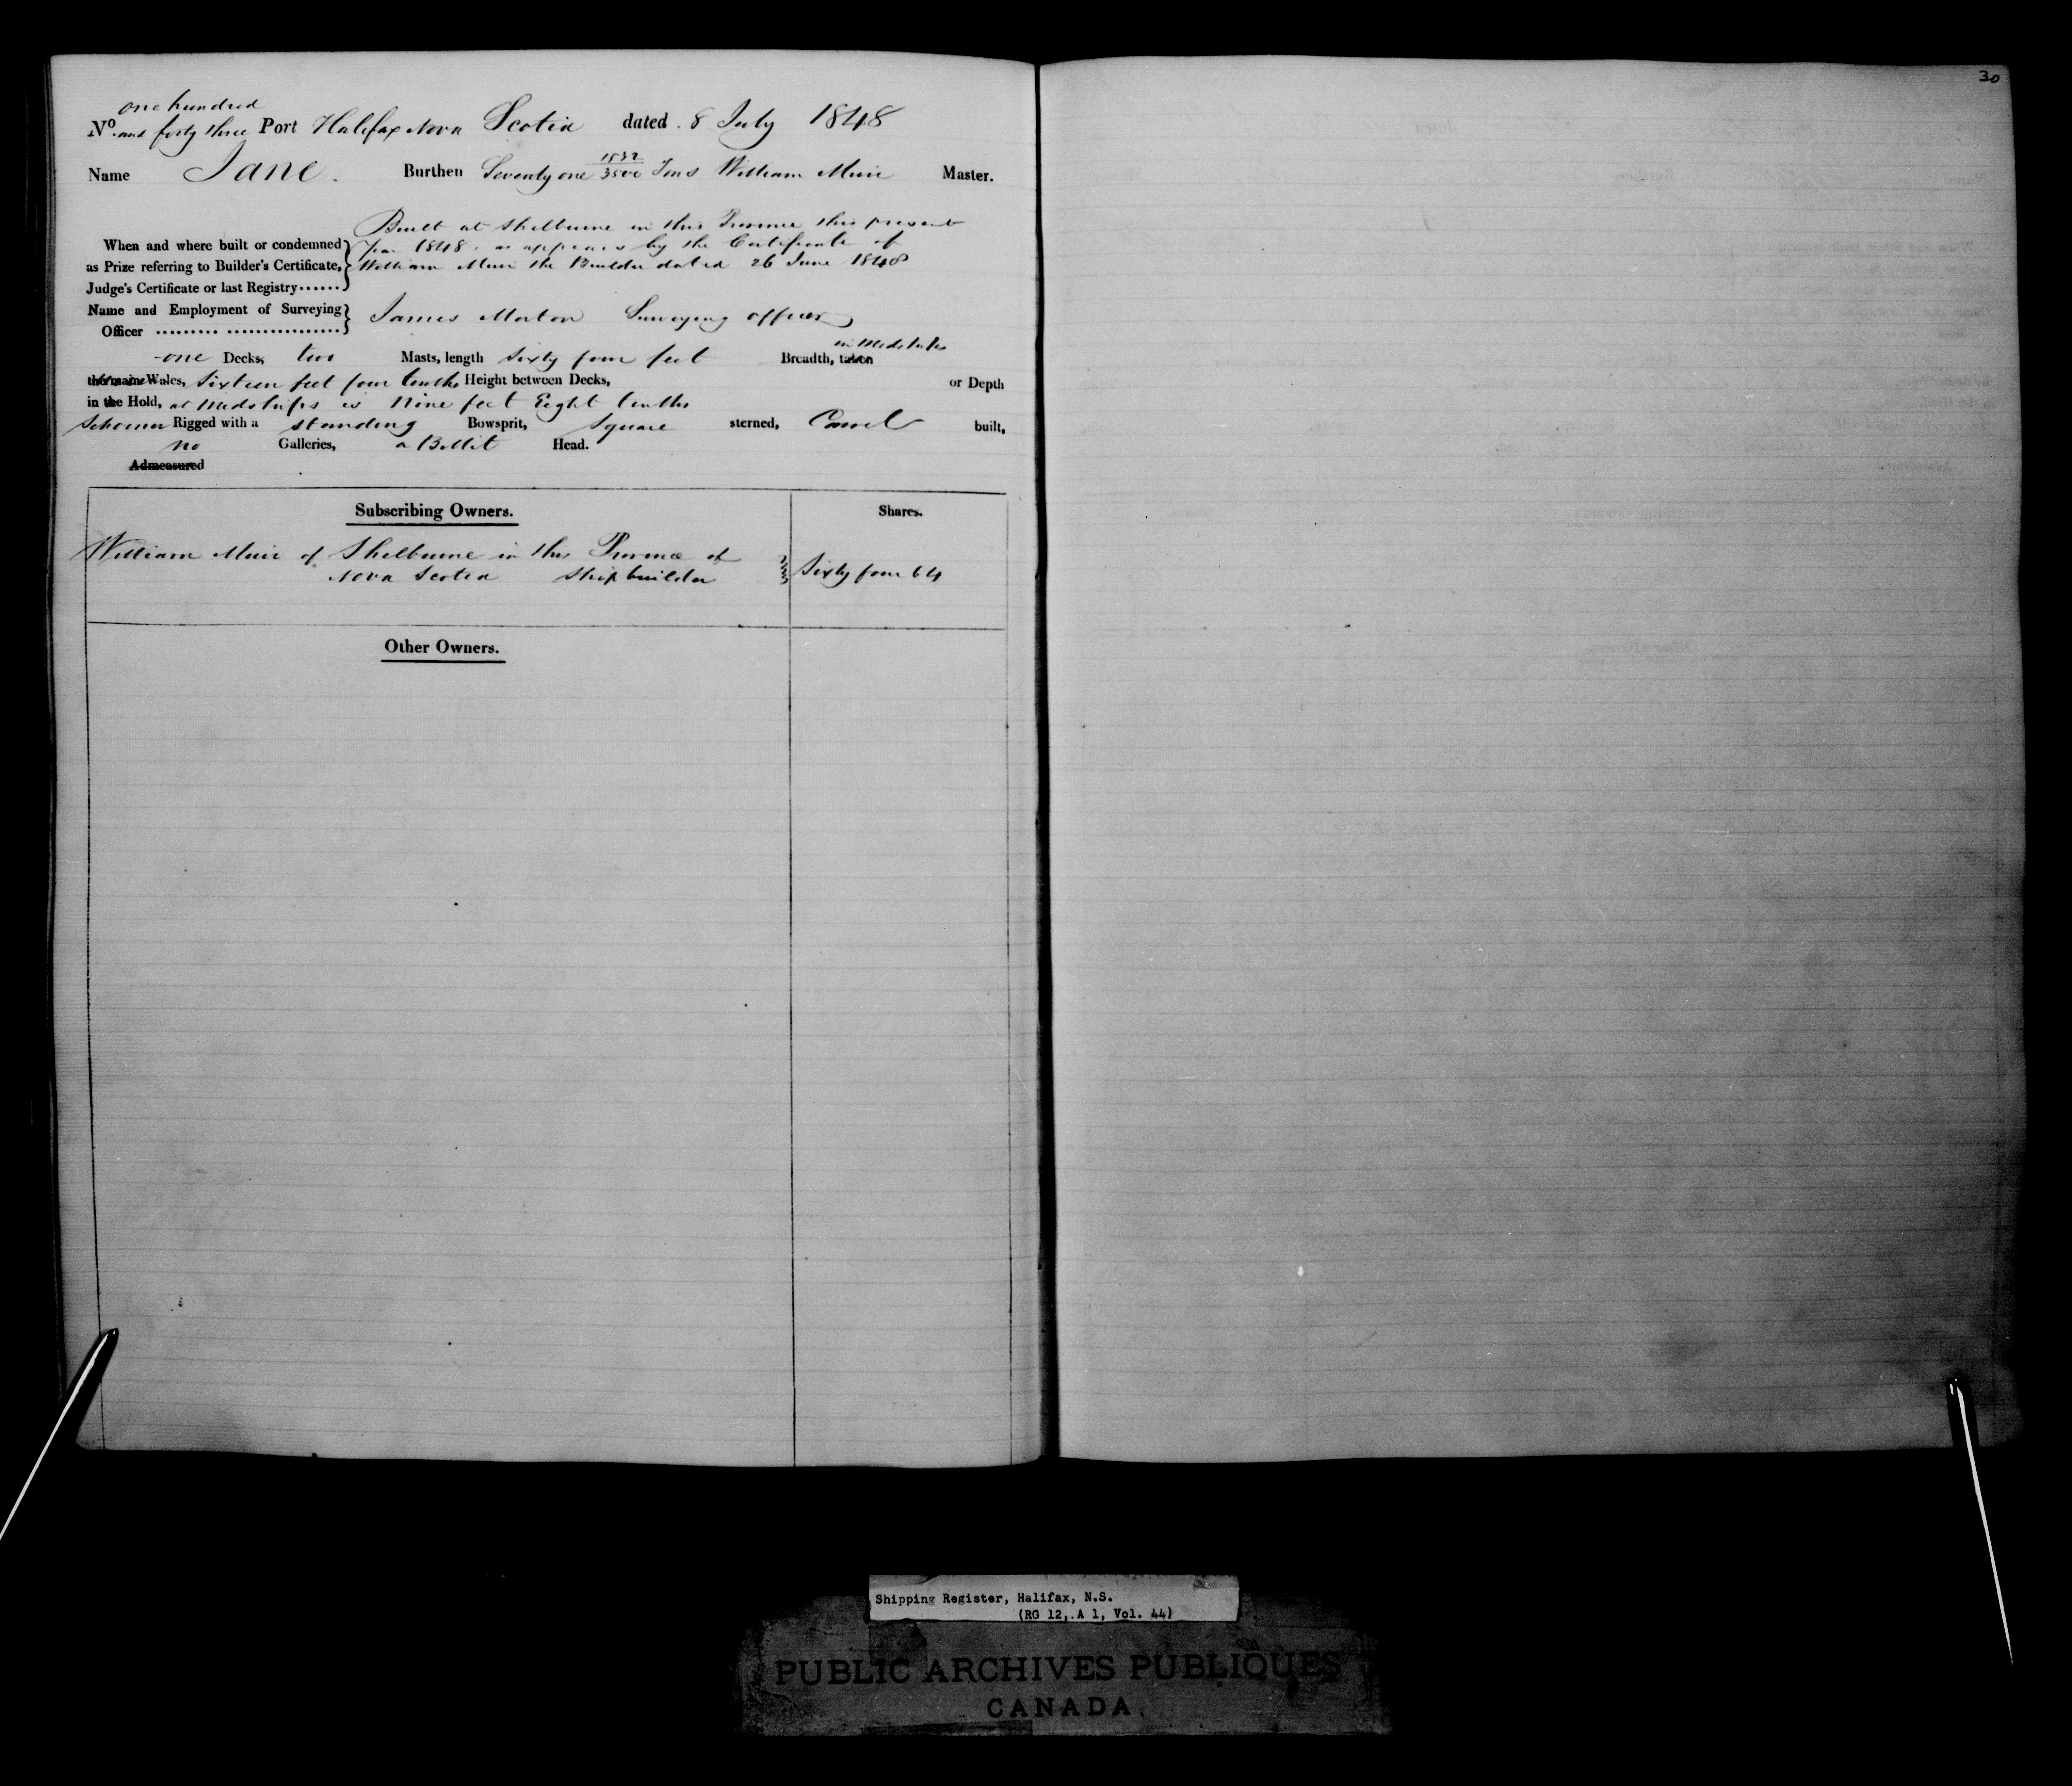 30
one hundred
No. and forty three Port Halifax Nova Scotia dated 8 July 1848
Name Jane. Burthen Seventy one 1532/3500 Tons William Muir Master.
Built at Shelburne in this Province this present
When and where built or condemned year 1848, as appears by the Certificate of
as Prize referring to Builder's Certificate, William Muir the Builder dated 26 June 1848
Judge's Certificate or last Registry......
Name and Employment of Surveying James Morton Surveying officer
Officer ......... ................
in Midships
one Decks, two Masts, length Sixty four feet Breadth, taken
the main Wales, Sixteen feet four tenths Height between Decks, or Depth
in the Hold, at Midships is Nine feet Eight tenths
Schooner Rigged with a standing Bowsprit, Square sterned, Carvel built,
no Galleries, a Billet Head.
Admeasured
Subscribing Owners. Shares.
William Muir of Shelburne in this Province of
Nova Scotia Shipbuilder Sixty four 64
Other Owners.
Shipping Register, Halifax, N.S.
(RG 12, A 1, Vol. 44)
PUBLIC ARCHIVES PUBLIQUES
CANADA